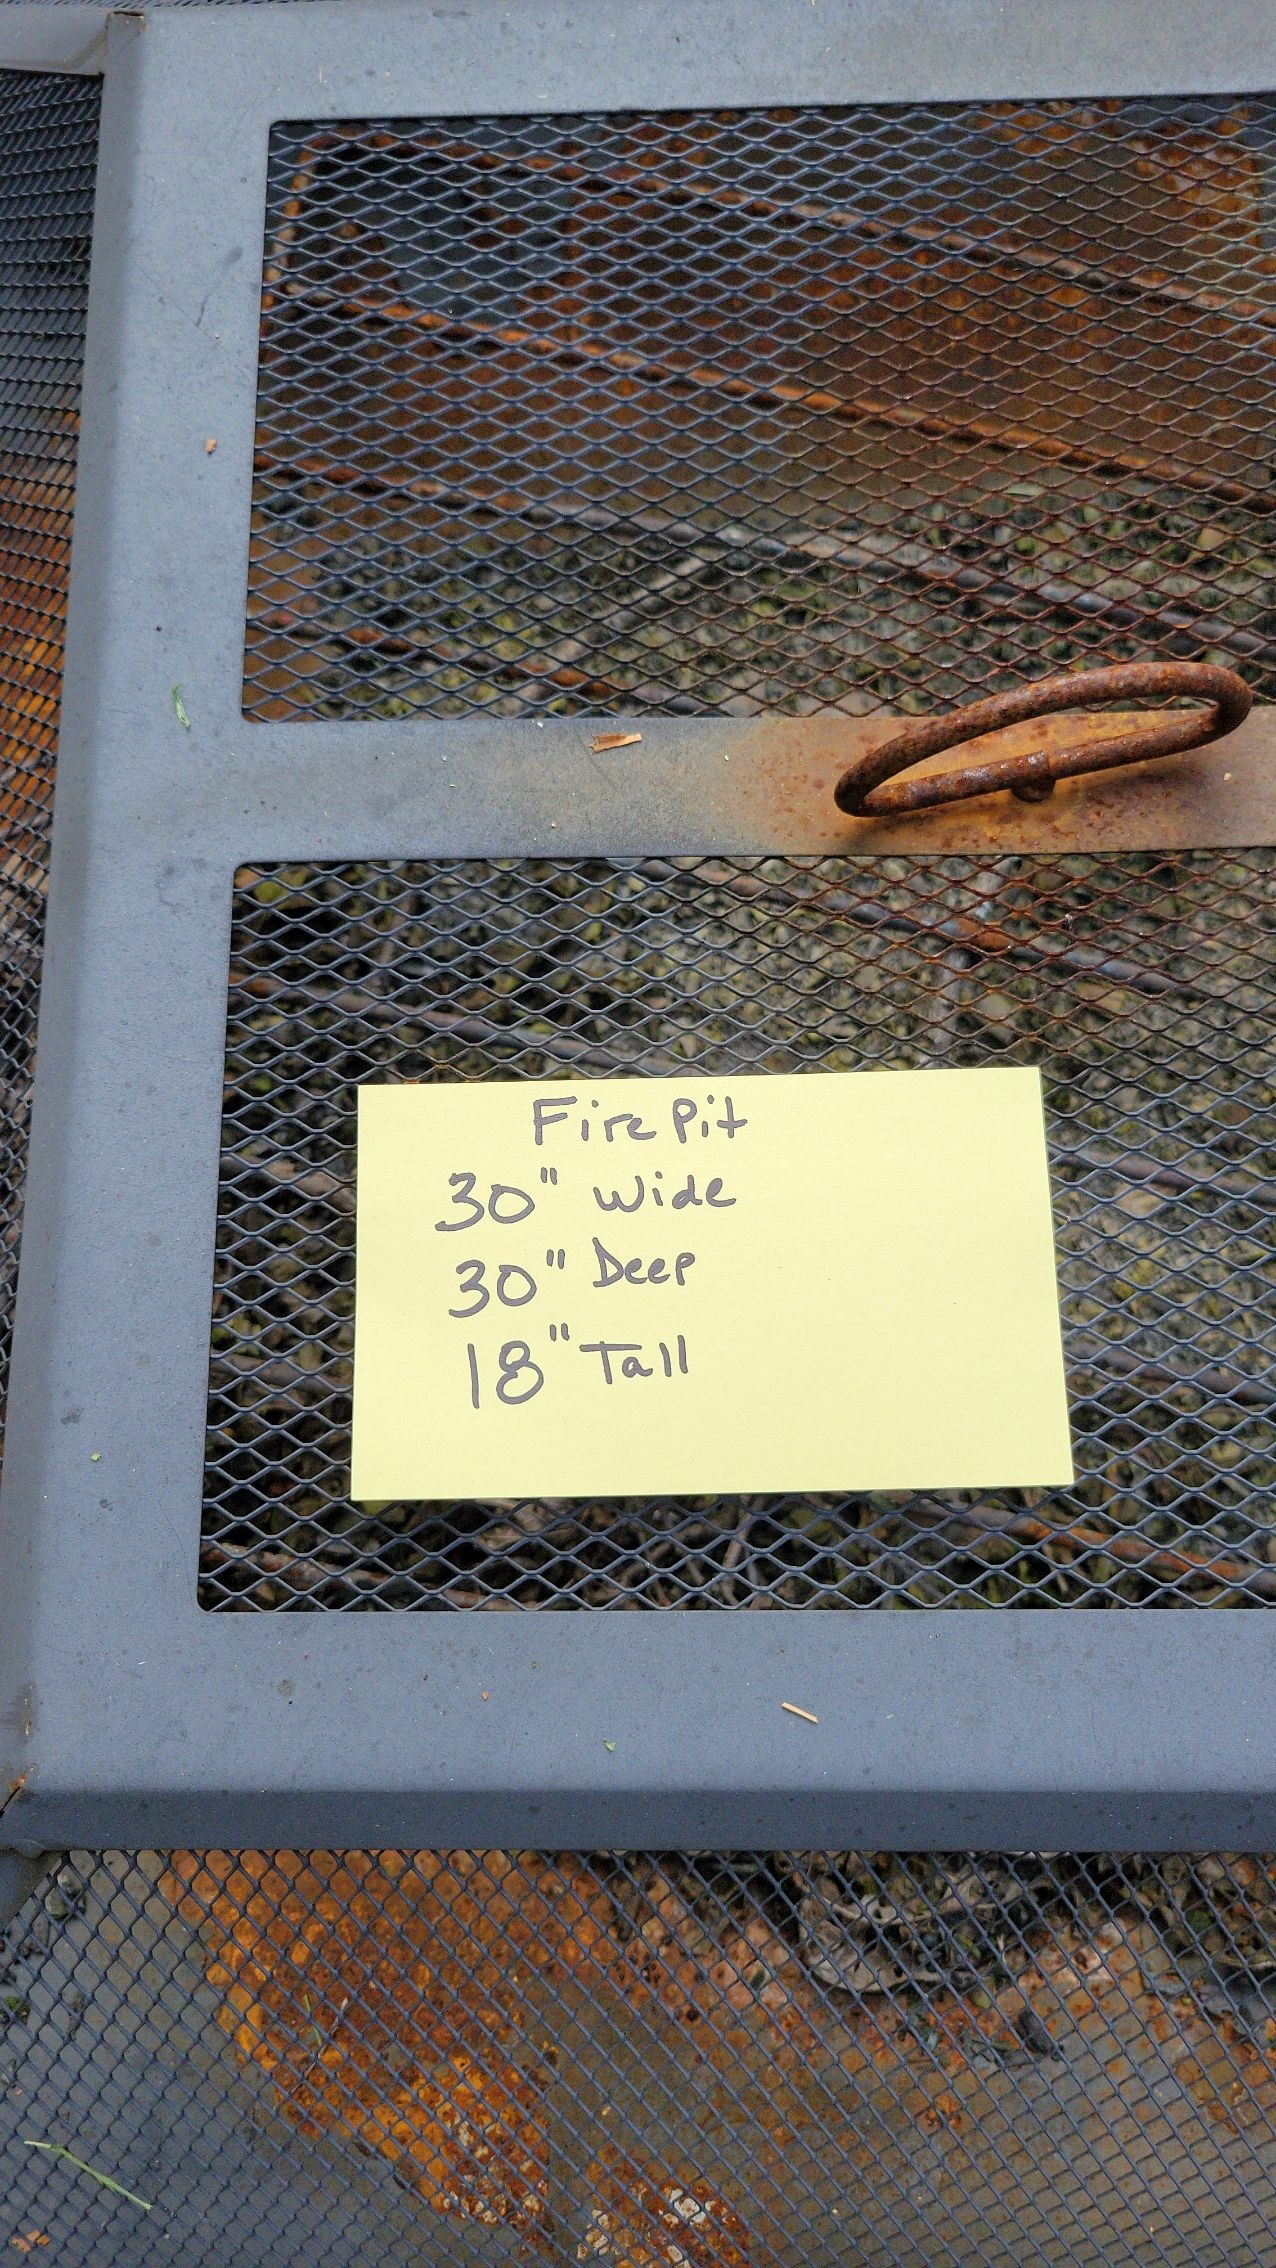 Fire Pit
30" Wide
30" Deep
18" Tall